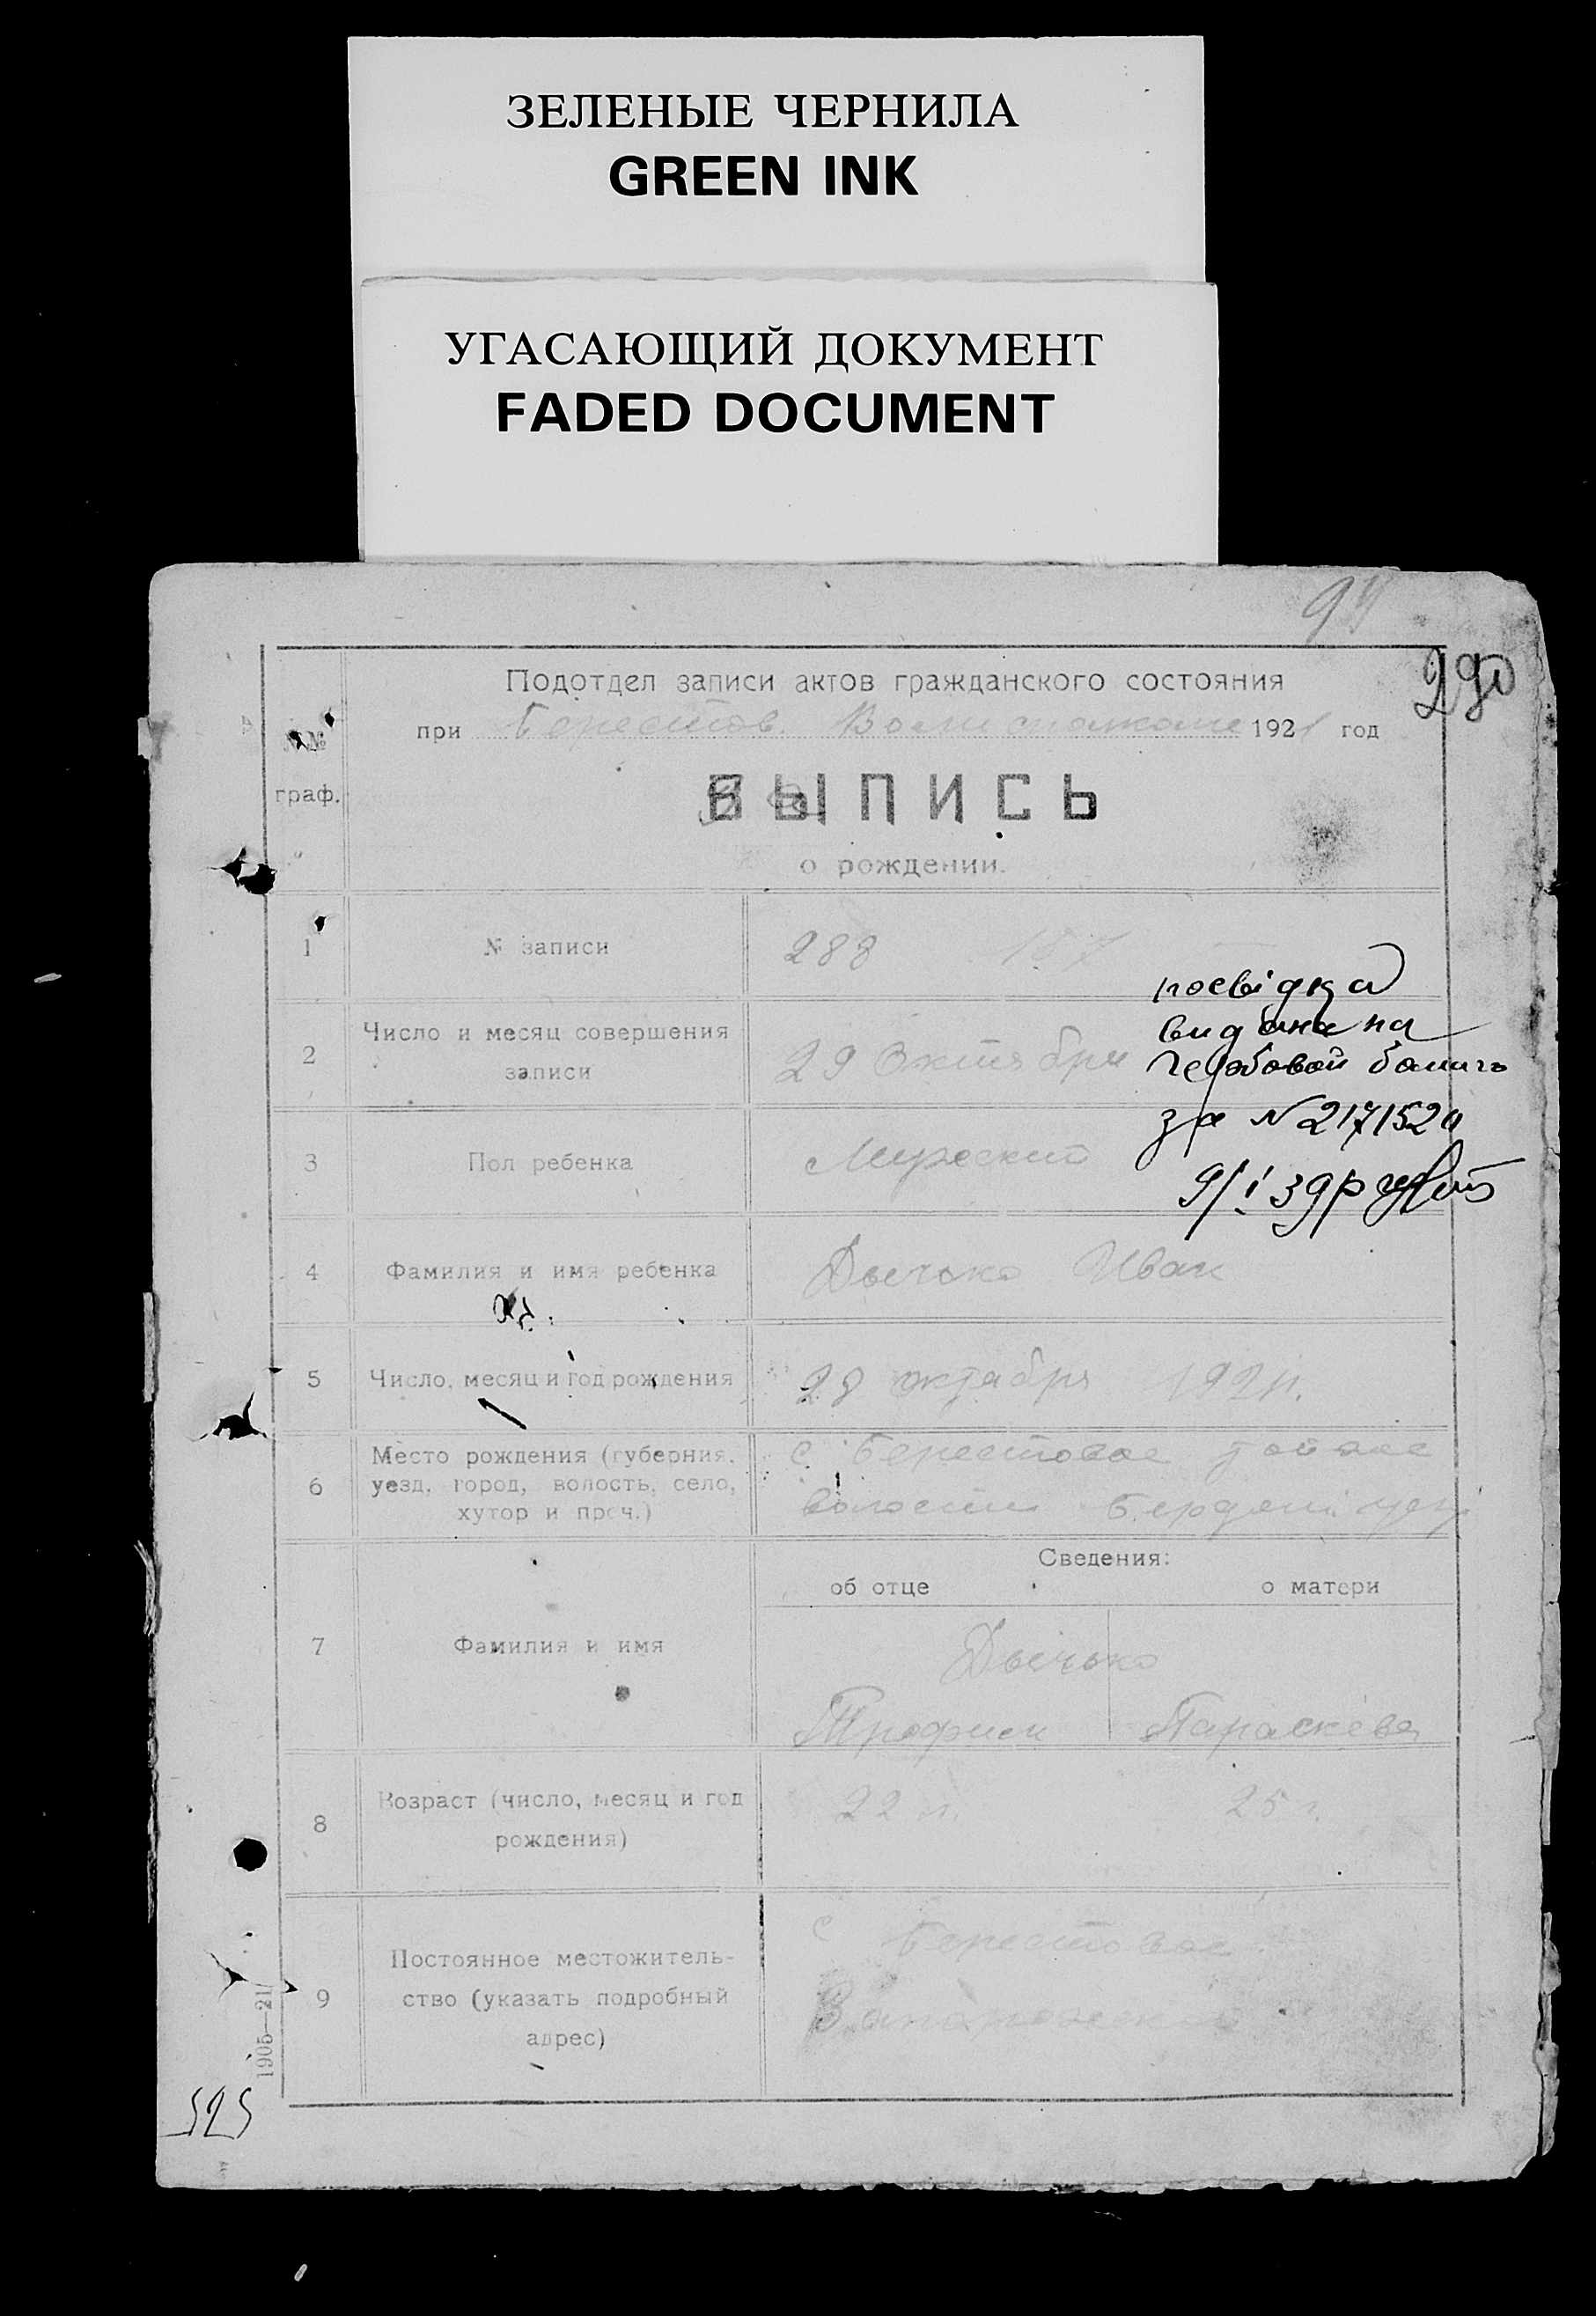 ЗЕЛЕНЫЕ ЧЕРНИЛА
GREEN INK
УГАСАЮЩИЙ ДОКУМЕНТ
FADED DOCUMENT
94
290
Подотдел записи актов гражданского состояния
при Берестов 1921 год
№№
граф.
ВЫПИСЬ
о рождении.
1 № записи 288 157
посвідка
видана на
2 Число и месяц совершения
записи 29 Октября
гербовой
за N 217152
3 Пол ребенка Мужской
9/I 39р
4 Фамилия и имя ребенка Дычко Иван
5 Число, месяц и год рождения 28 октября 1921 г.
6 Место рождения (губерния,
уезд, город, волость, село,
хутор и проч.)
с Берестовое тойже
волости Бердян. уез
Сведения:
об отце о матери
7 Фамилия и имя Дычко
Трофим Параскева
8 Возраст (число, месяц и год
рождения) 22 г. 25 г.
9 Постоянное местожитель-
ство (указать подробный
адрес)
с Берестовое
1905—21
525